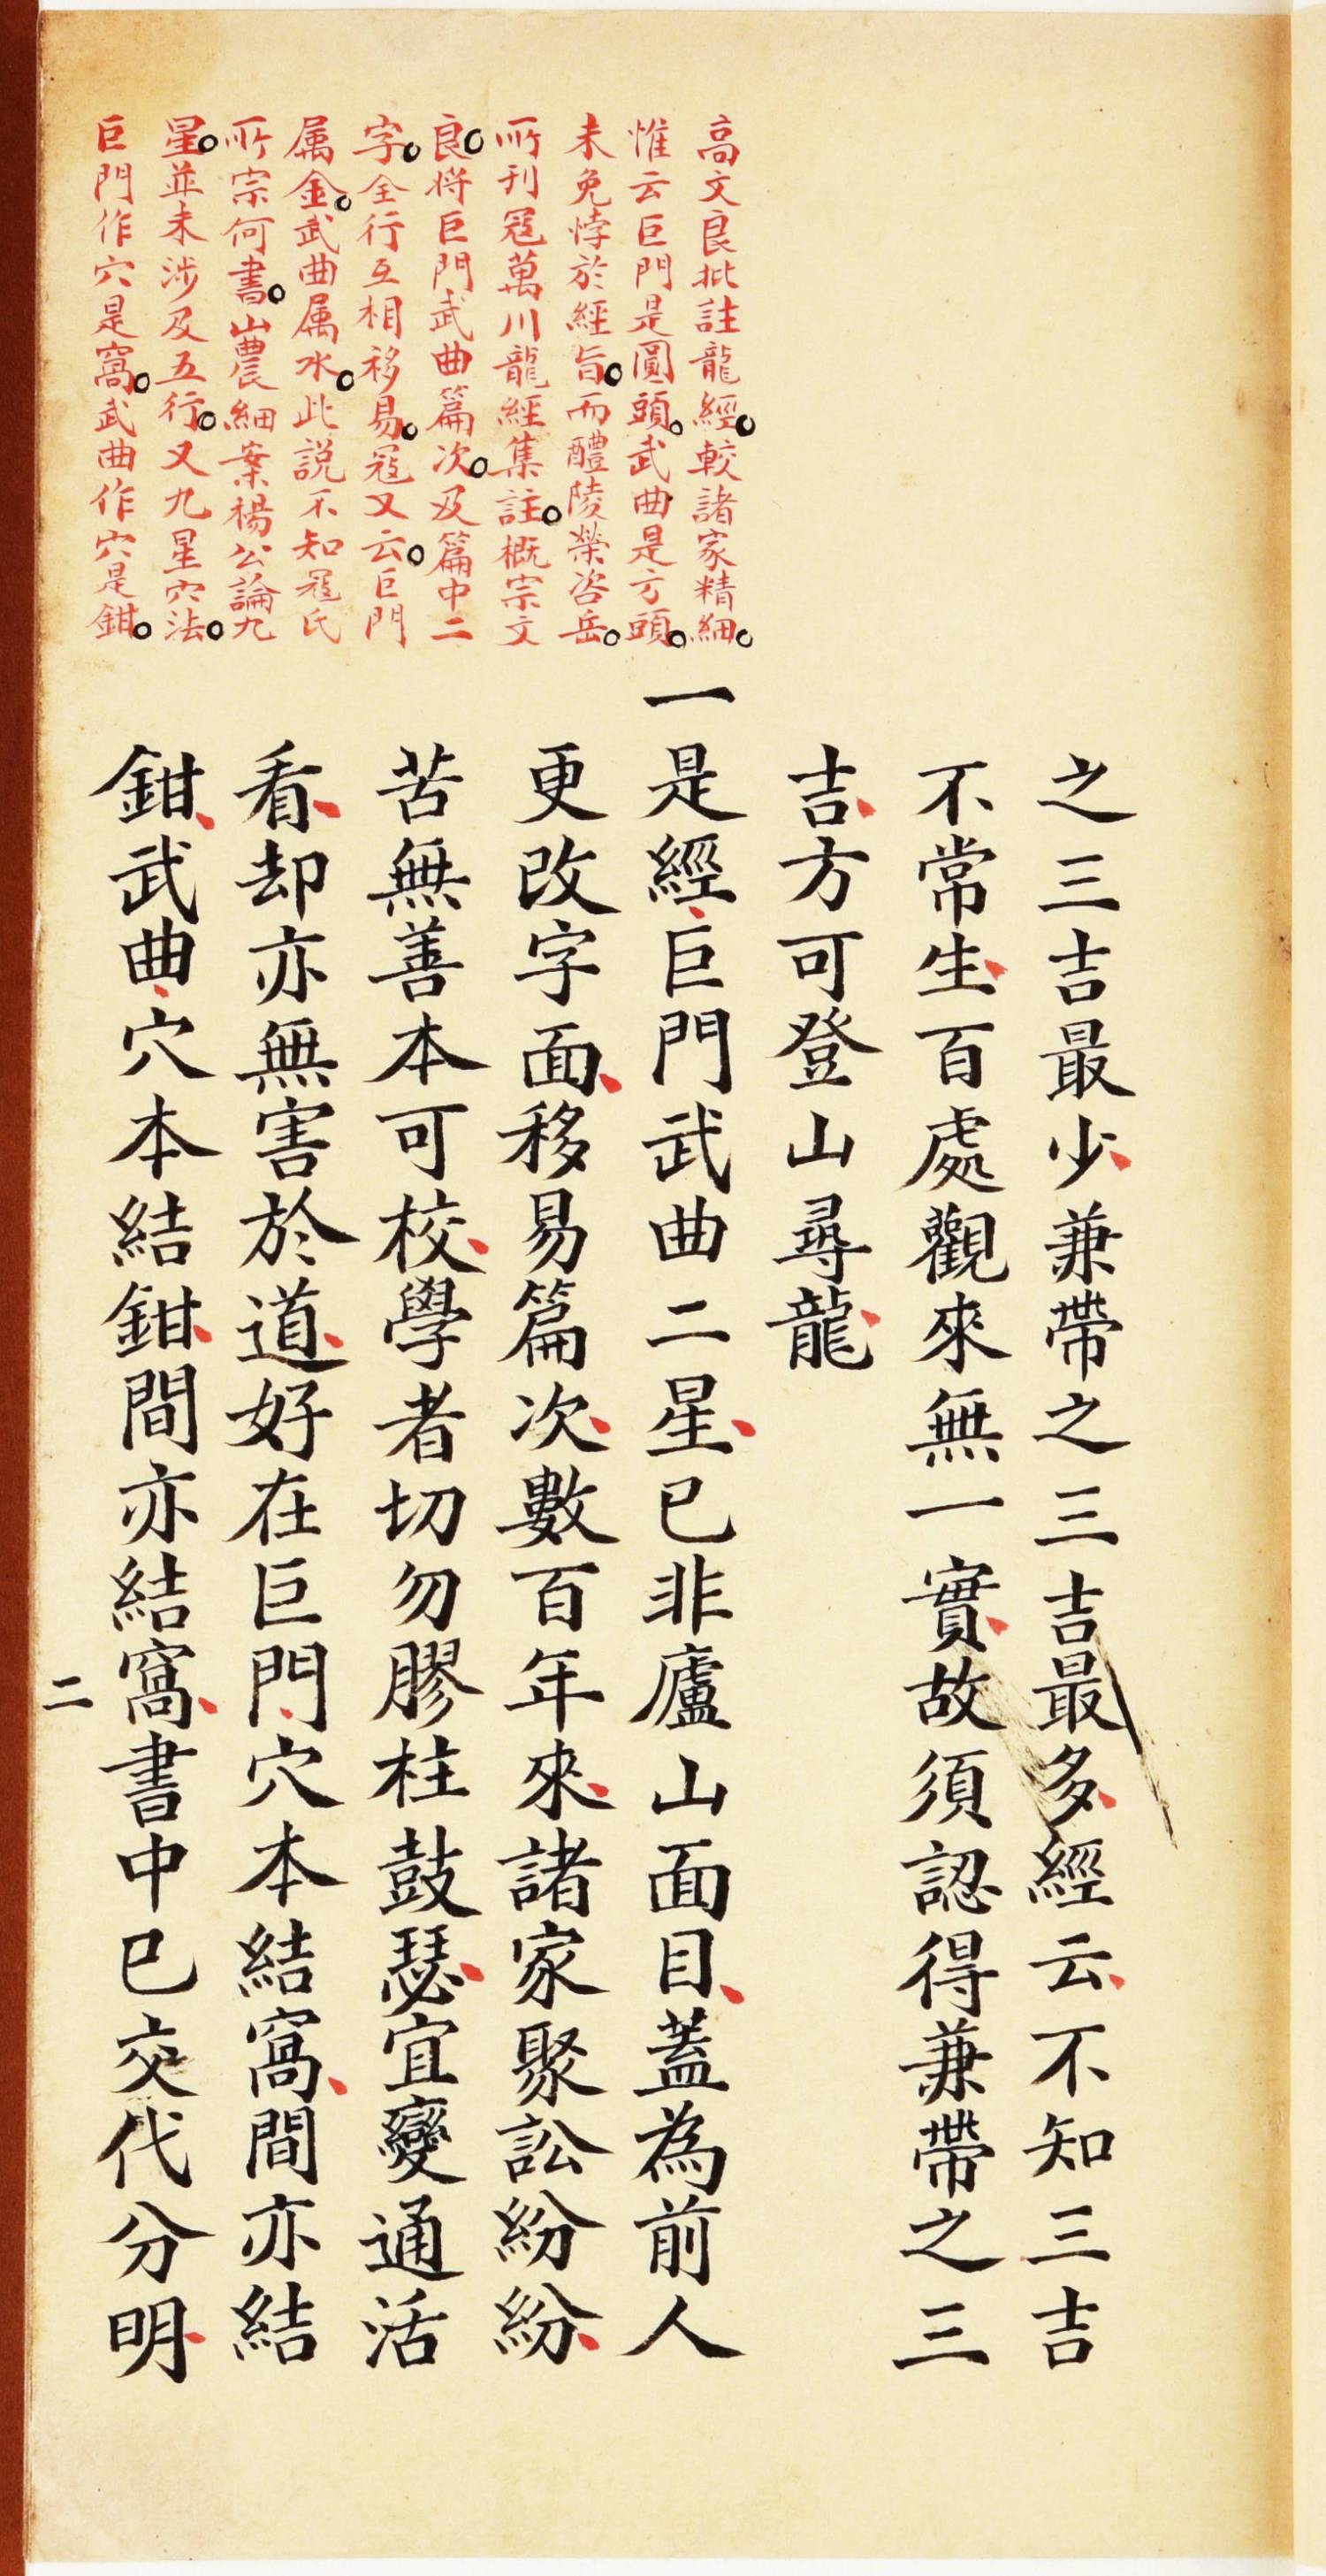 之三吉最少兼帶之三吉最多經云不知三吉
不常生百處觀來無一實故須認得兼帶之三
吉方可登山尋龍
一是經巨門武曲二星已非廬山面目蓋為前人
更改字面移易篇次數百年來諸家聚訟紛紛
苦無善本可校學者切勿膠柱鼓瑟宜變通活
看却亦無害於道好在巨門穴本結窩間亦結
鉗武曲穴本結鉗間亦結窩書中已交代分明
高文良批註龍經較諸家精細
惟云巨門是圓頭武曲是方頭
未免悖於經旨而醴陵榮咨岳
所刊寇萬川龍經集註概宗文
良將巨門武曲篇次及篇中二
字全行互相移易寇又云巨門
属金武曲属水此説不知寇氏
所宗何書山農細案楊公論九
星並未涉及五行又九星穴法
巨門作穴是窩武曲作穴是鉗
二